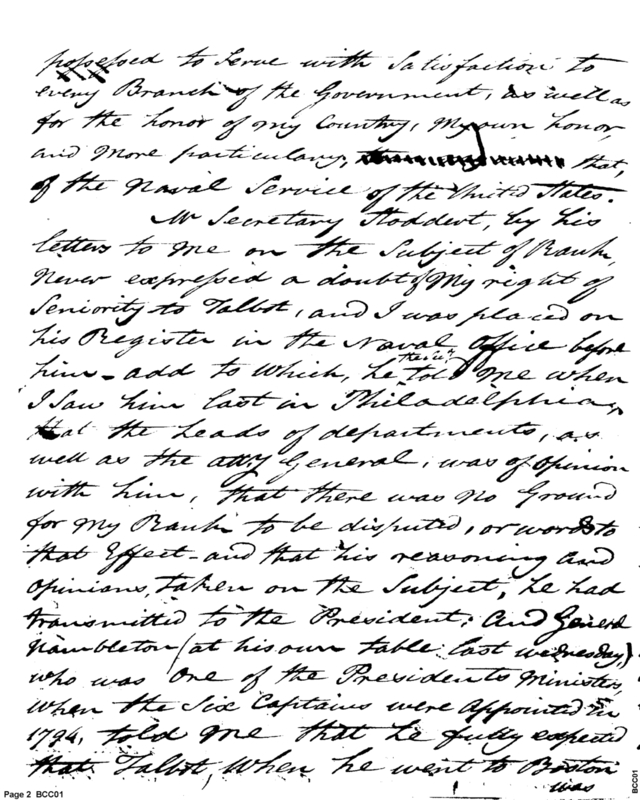 possessed to Serve with Satisfaction to
every Branch of the Government, as well as
for the honor of my Country, My own honor,
and More particulary, that,
of the Naval Service of the United States.
Mr Secretary Stoddert, by his
letters to Me on the Subject of Rank,
Never expressed a doubt of My right of
Seniority to Talbot, and I was placed on
his Register in the Naval Office before
him - add to which, he told Me when
I Saw him last in Philadelphia,
that the heads of departments, as
well as the atty General, was of opinion
with him, that there was no Ground
for My Rank to be disputed, or words to
that Effect - and that his reasoning and
Opinians, taken on the Subject, he had
transmitted to the President; And General
Hambleton (at his own table last wednesday,)
who was One of the Presidents Ministers,
when the Six Captains were Appointed in
1794, told Me that he fully expected
that Talbot, When he went to Boston
was
Page 2 BCC01
BCC01